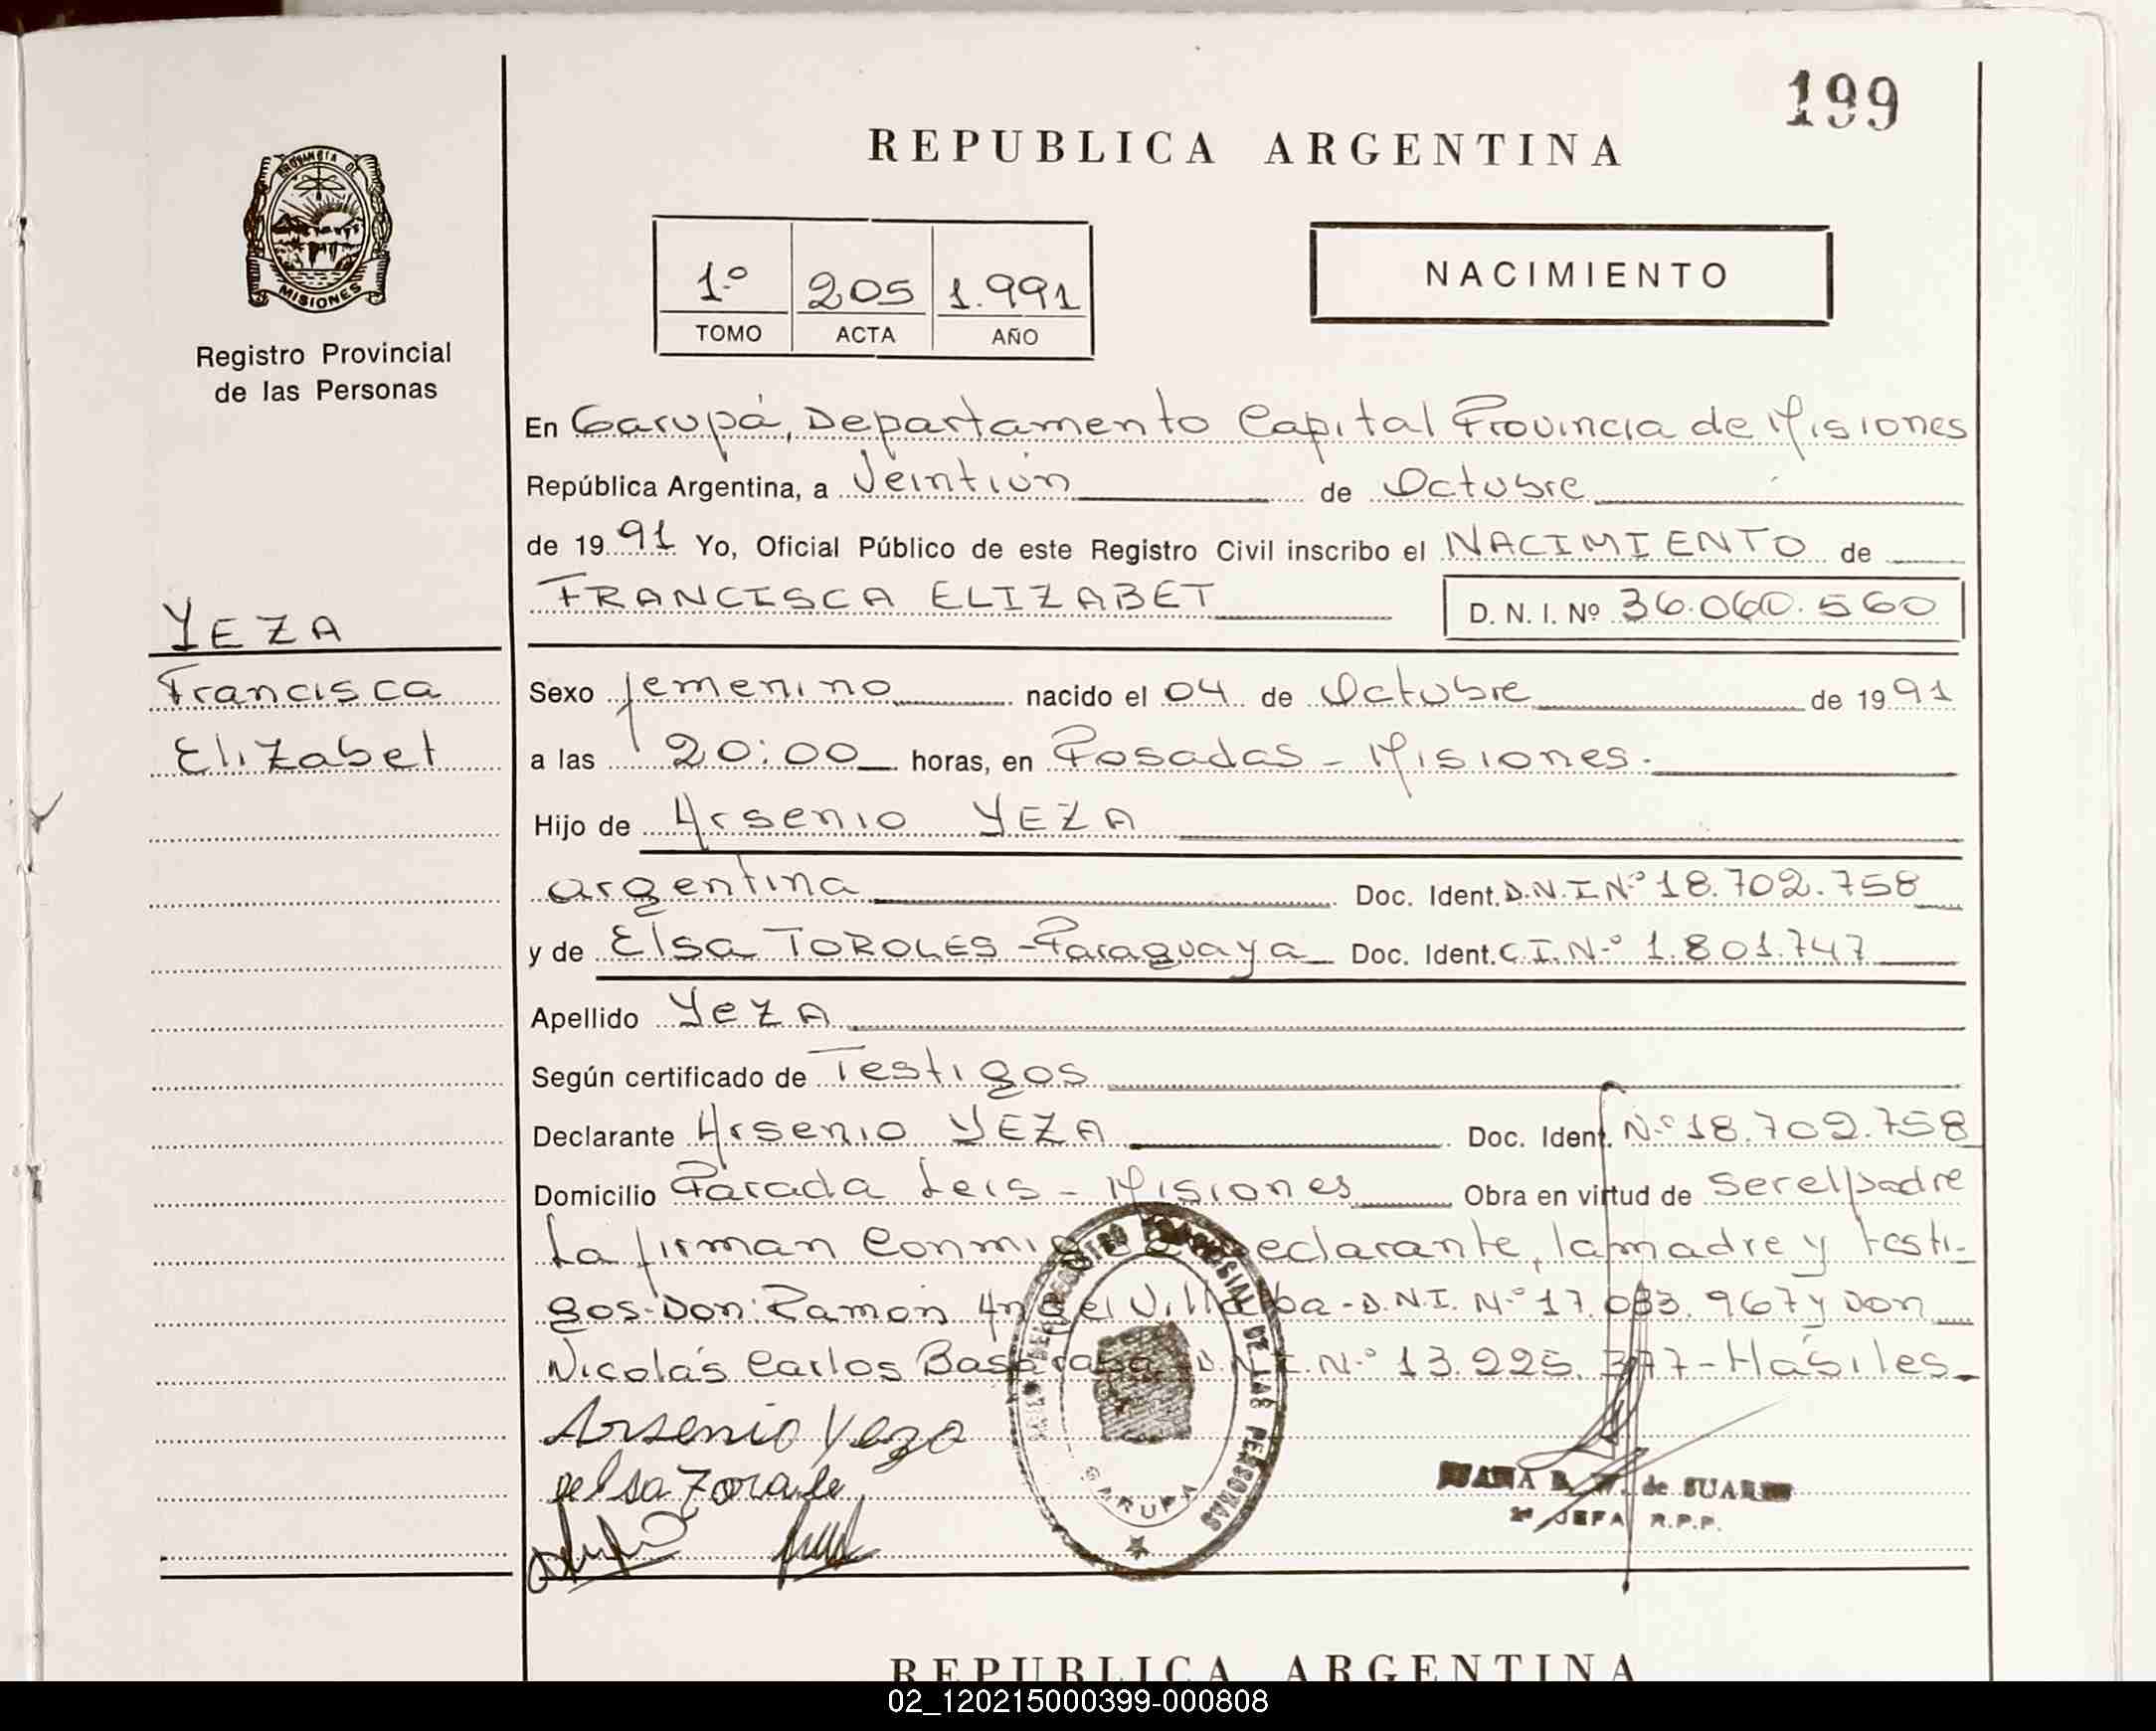 199
REPUBLICA ARGENTINA
PROVINCIA DE
MISIONES
Registro Provincial
de las Personas
1º 205 1.991
TOMO ACTA AÑO
NACIMIENTO
En Garupá, Departamento Capital Provincia de Misiones
República Argentina, a Veintiún de Octubre
de 1991 Yo, Oficial Público de este Registro Civil inscribo el NACIMIENTO de
FRANCISCA ELIZABET D. N. I. Nº 36.060.560
YEZA
Francisca
Elizabet
Sexo femenino nacido el 04 de Octubre de 1991
a las 20:00 horas, en Posadas - Misiones.
Hijo de Arsenio YEZA
argentina Doc. Ident. D.N.I Nº 18.702.758
y de Elsa TOROLES - Paraguaya Doc. Ident. C.I.Nº 1.801.747
Apellido YeZA
Según certificado de Testigos
Declarante Arsenio YEZA Doc. Ident. Nº 18.702.758
Domicilio Parada Leis - Misiones Obra en virtud de ser el padre
La firman Conmigo eclarante, la madre y testi-
gos-Don: Ramón Angel Villalba - D.N.I. Nº 17.083.967 y Don
Nicolás Carlos D.N.I.Nº 13.225.377 - Hábiles
Arsenio Yeza
DE LAS PERSONAS
GARUPA
de SUAREZ
JEFA R.P.P.
REPUBLICA ARGENTINA
02_120215000399-000808